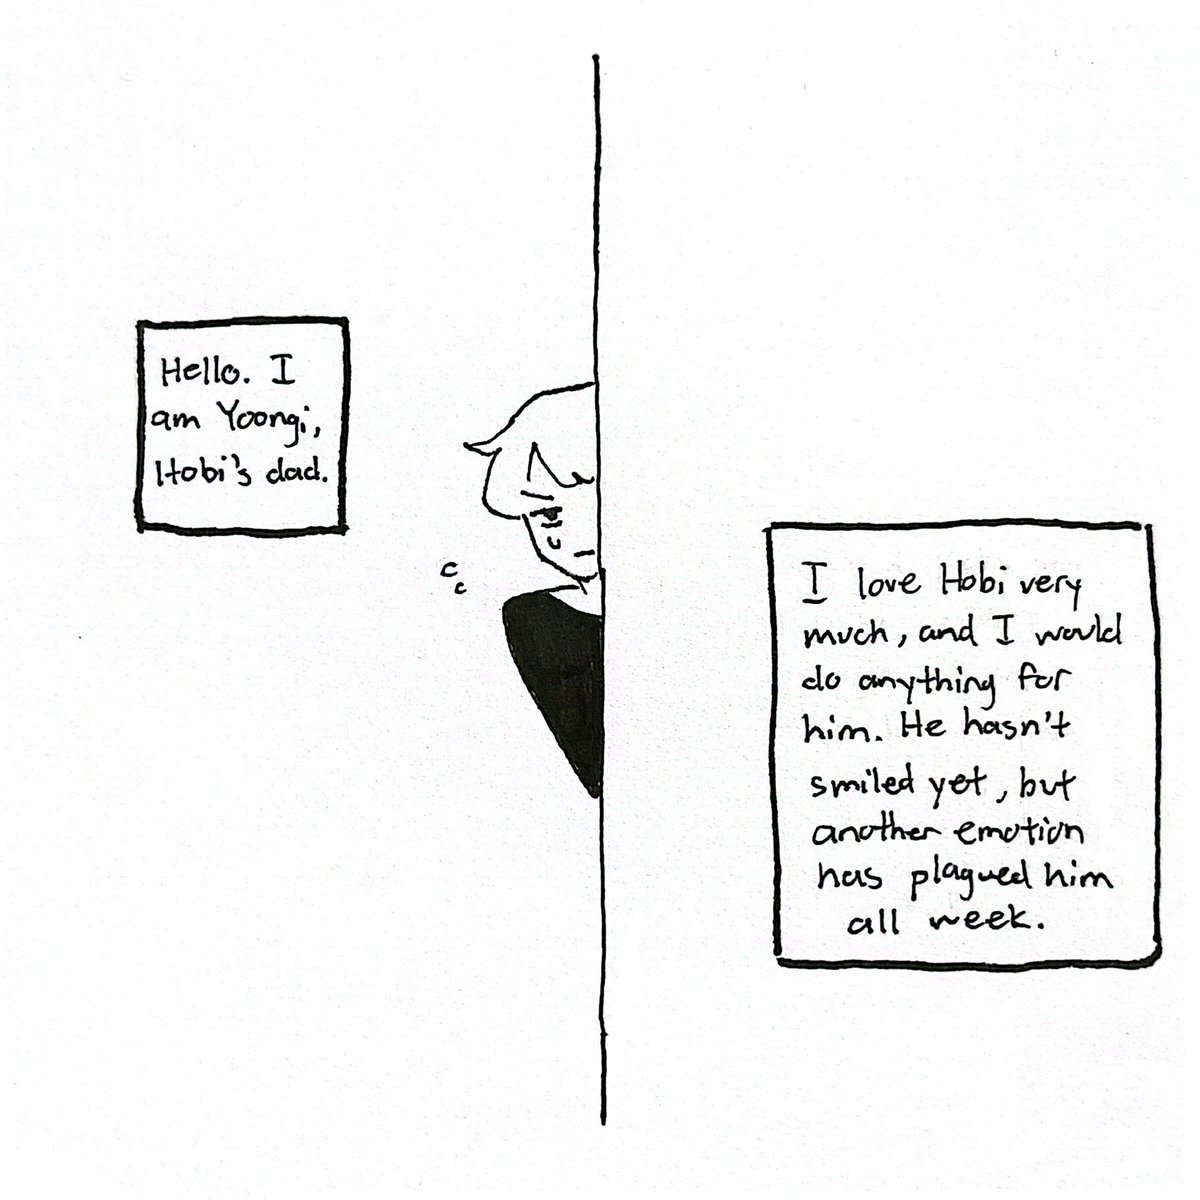 Hello. I
am Yoongi,
Hobi's dad.
I love Hobi very
much, and I would
do anything for
him. He hasn't
smiled yet, but
another emotion
has plagued him
all week.